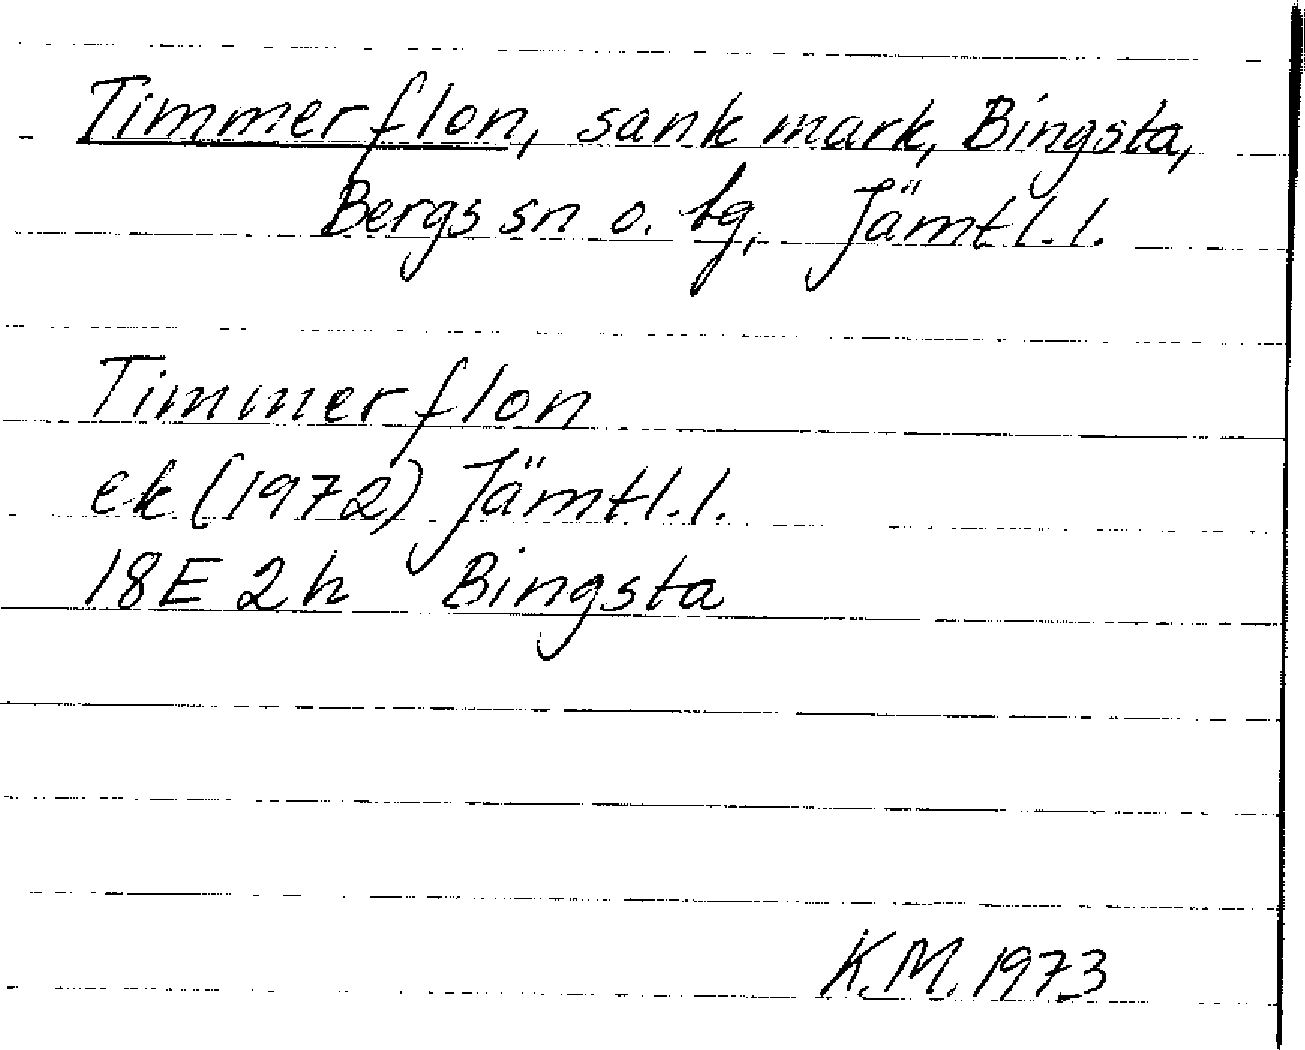 Timmerflon, sank mark, Bingsta,
Bergs sn o. tg, Jämtl. l.
Timmerflon
ek (1972) Jämtl. l.
18E 2h Bingsta
K.M. 1973